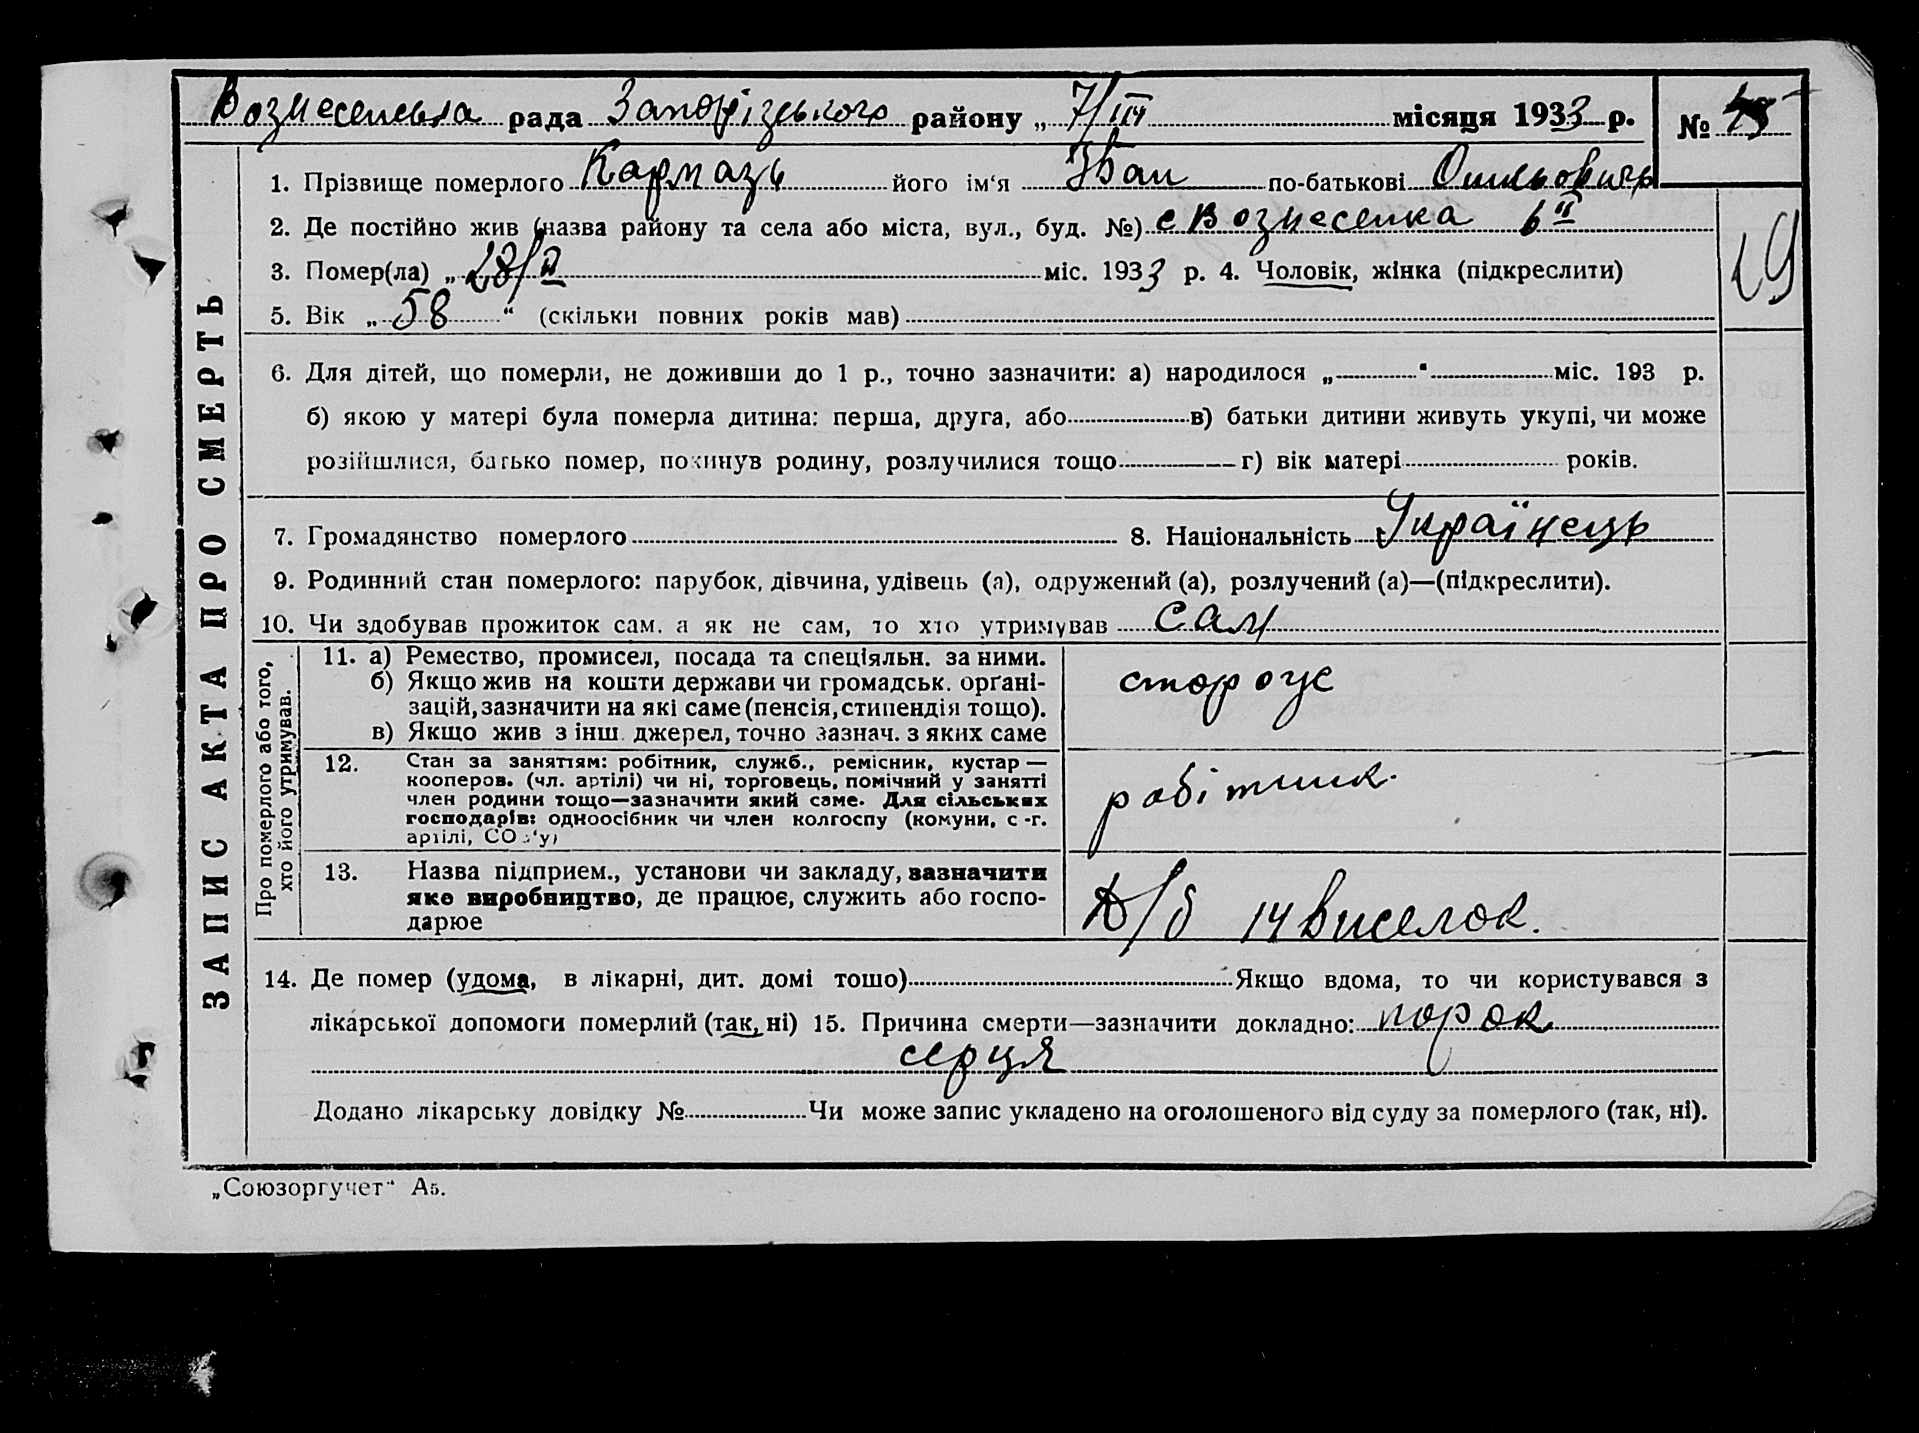 Вознесенська рада Запорізького району „ 7/III місяця 1933 р. №
1. Прізвище померлого Кармазь його ім‘я Іван по-батькові
2. Де постійно жив (назва району та села або міста, вул., буд. №) с Вознесенка
3. Помер(ла) „ 28/II міс. 1933 р. 4. Чоловік, жінка (підкреслити)
19
5. Вік „ 58 “ (скільки повних років мав)
6. Для дітей, що померли, не доживши до 1 р., точно зазначити: а) народилося „ “ міс. 193 р.
б) якою у матері була померла дитина: перша, друга, або в) батьки дитини живуть укупі, чи може
розійшлися, батько помер, покинув родину, розлучилися тощо г) вік матері років.
7. Громадянство померлого 8. Національність Українець
9. Родинний стан померлого: парубок, дівчина, удівець (а), одружений (а), розлучений (а)—(підкреслити).
10. Чи здобував прожиток сам, а як не сам, то хто утримував сам
ЗАПИС АКТА ПРО СМЕРТЬ
Про померлого або того,
хто його утримував.
11. а) Ремество, промисел, посада та спеціяльн. за ними.
б) Якщо жив на кошти держави чи громадськ. орґані-
зацій, зазначити на які саме (пенсія, стипендія тощо).
в) Якщо жив з інш. джерел, точно зазнач. з яких саме
сторож
12. Стан за заняттям: робітник, служб., ремісник, кустар —
кооперов. (чл. артілі) чи ні, торговець, помічний у занятті
член родини тощо—зазначити який саме. Для сільських
господарів: одноосібник чи член колгоспу (комуни, с.-г.
артілі, СОЗ‘у)
робітник.
13. Назва підприєм., установи чи закладу, зазначити
яке виробництво, де працює, служить або госпо-
дарює
Д/б 14 виселок.
14. Де помер (удома, в лікарні, дит. домі тошо) Якщо вдома, то чи користувався з
лікарської допомоги померлий (так, ні) 15. Причина смерти—зазначити докладно: порок
серця
Додано лікарську довідку № Чи може запис укладено на оголошеного від суду за померлого (так, ні).
„Союзоргучет“ А5.